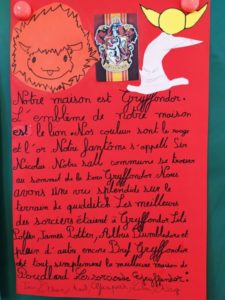 Notre maison est Gryffondor.
L'emblème de notre maison
est le lion. Nos couleurs sont le rouge
et l'or. Notre fantôme s'appelle Sir
Nicolas. Notre salle commune se trouve
au sommet de la tour Gryffondor. Nous
avons une vue splendide sur le
terrain de quidditch. Les meilleurs
des sorciers étaient à Gryffondor
Potter, James Potter, Albus Dumbledore et
plein d'autre encore. Bref Gryffondor
est tout simplement la meilleure maison de
Poudlard.